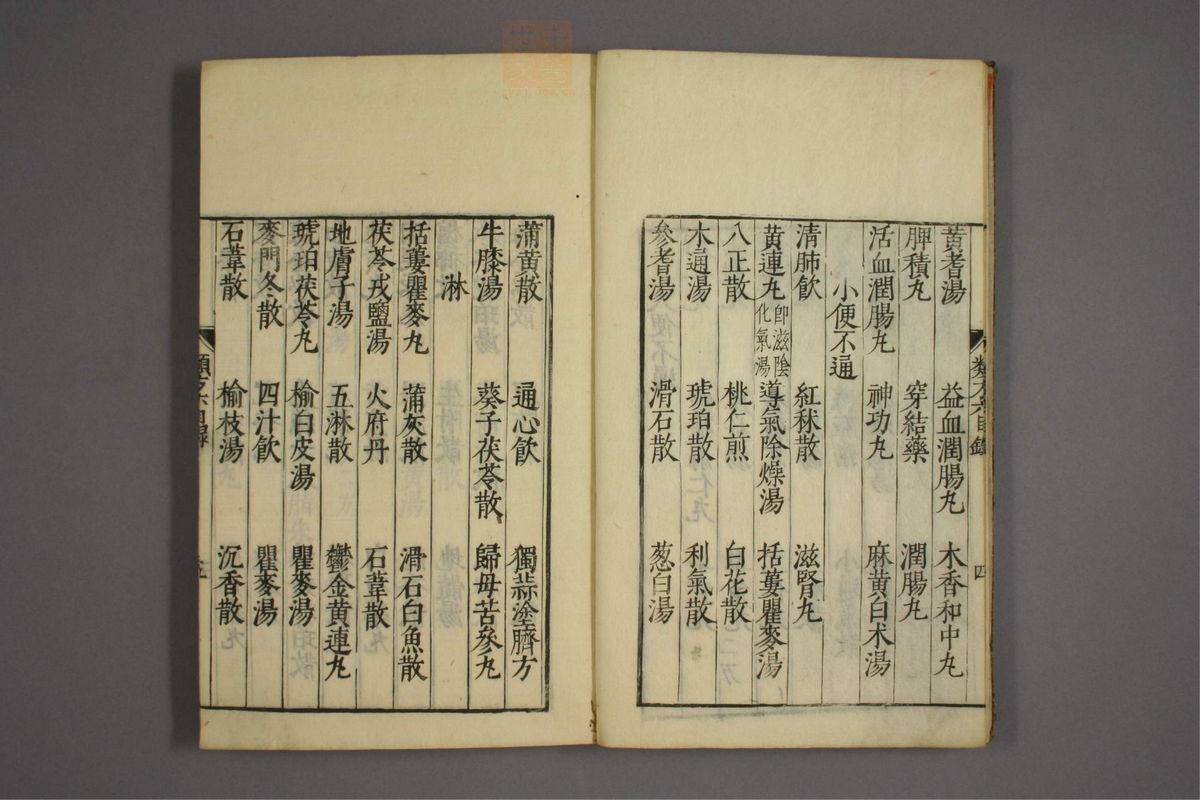 黄耆湯 益血潤腸丸 木香和中丸
脾積丸 穿結藥 潤腸丸
活血潤腸丸 神功丸 麻黄白术湯
小便不通
清肺飲 紅秫散 滋腎丸
黄連丸 卽滋陰化氣湯 導氣除燥湯 括蔞瞿麥湯
八正散 桃仁煎 白花散
木通湯 琥珀散 利氣散
參耆湯 滑石散 葱白湯
類方六目錄
四
蒲黄散 通心飲 獨蒜塗臍方
牛膝湯 葵子茯苓散 歸母苦參丸
淋
括蔞瞿麥丸 蒲灰散 滑石白魚散
茯苓戎鹽湯 火府丹 石葦散
地膚子湯 五淋散 鬱金黄連丸
琥珀茯苓丸 榆白皮湯 瞿麥湯
麥門冬散 四汁飲 瞿麥湯
石葦散 榆枝湯 沉香散